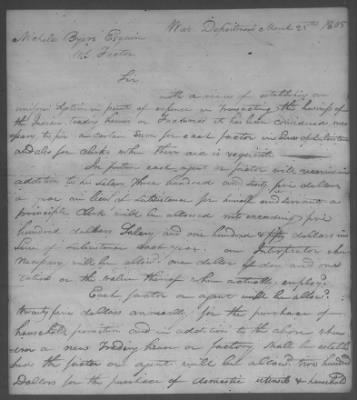 War Department March 25th 1805
Nicholas Byers Esquire
U.S. Factor
Sir
With a view of establishing an
uniform System in point of expence in transacting the business of
the Indian trading houses or Factories it has been considered neces
sary to fix a certain Sum for each factor in lieu of Subsistence
and also for clerks when their aid is requisite.
In future each agent or factor will receive in
addition to his salary three hundred and sixty five dollars
a year in lieu of Subsistence for himself and servant a
principle Clerk will be allowed not exceeding five
hundred dollars Salary and one hundred & fifty dollars in
lieu of subsistence each year. an Interpreter when
necessary will be allowed one dollar a day and one
ration or the value thereof when actually employed.
Each factor or agent will be allowed
twenty five dollars annually for the purchase of
household furniture and in addition to the above when
ever a new trading house or factory shall be establis
hed the factor or agent will be allowed two hundred
Dollars for the purchase of domestic utensils & household